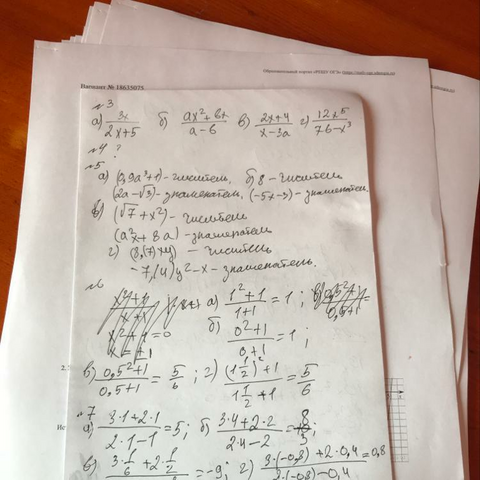 Образовательный портал «РЕШУ ОГЭ»
Вариант № 18635075
№3
а) 3x/(2x+5) б) (ax²+bx)/(a-6) в) (2x+4)/(x-3a) г) 12x⁵/(7b-x³)
№4 ?
№5
а) (3,9a³+1) - числитель, б) 8 - числитель
(2a-√3) - знаменатель, (-5x-3) - знаменатель.
в) (√7+x²) - числитель
(a²x+8a) - знаменатель
г) (8,(7)xy) - числитель
-7,(4)y²-x - знаменатель.
№6
а) (1²+1)/(1+1) = 1;
б) (0²+1)/(0+1) = 1;
в) (0,5²+1)/(0,5+1) = 5/6; г) ((1 1/2)²+1)/(1 1/2+1) = 5/6
№7
а) (3·1+2·1)/(2·1-1) = 5; б) (3·4+2·2)/(2·4-2) =
в) 3·1/6+2·1/2 = -9; г) (3·(-0,8)+2·0,4)/(2·(-0,8)-0,4) = 0,8